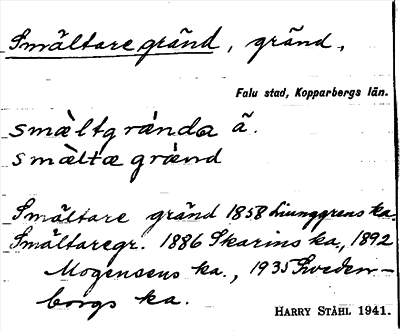 Smältaregränd, gränd.
Falu stad, Kopparbergs län.
smæ̀ltgrándα ä.
smæ̀ltægränd
Smältare gränd 1858 Liunggrens ka.
Smältaregr. 1886 Skarins ka, 1892
Mogensens ka., 1935 Sweden-
borgs ka.
HARRY STÅHL 1941.